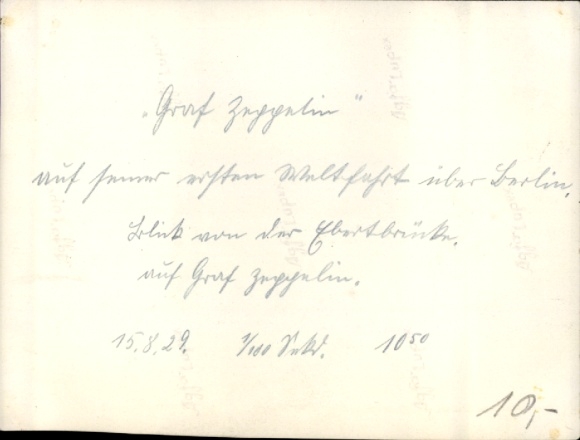 „Graf Zeppelin“
auf seiner ersten Weltfahrt über Berlin.
Blick von der Ebertbrücke.
auf Graf Zeppelin.
15.8.29. 1/100 Sekd. 10⁵⁰
10,-